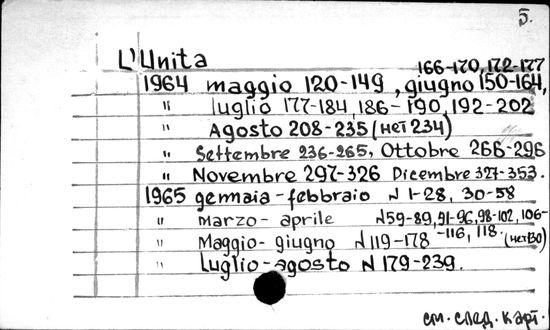 5.
L'Unita
166-170, 172-177
1964 maggio 120-149, giugno 150-164,
" luglio 177-184, 186-190, 192-202
" Agosto 208-235 (нет 234)
" Settembre 236-265, Ottobre 266-296
" Novembre 297-326 Dicembre 327-353.
1965 gennaia-febbraio N 1-28, 30-58
" marzo-aprile N 59-89, 91-96, 98-102, 106-
-116, 118.
" Maggio-giugno N 119-178 (нет 130)
" Luglio-agosto N 179-239.
см. след. карт.